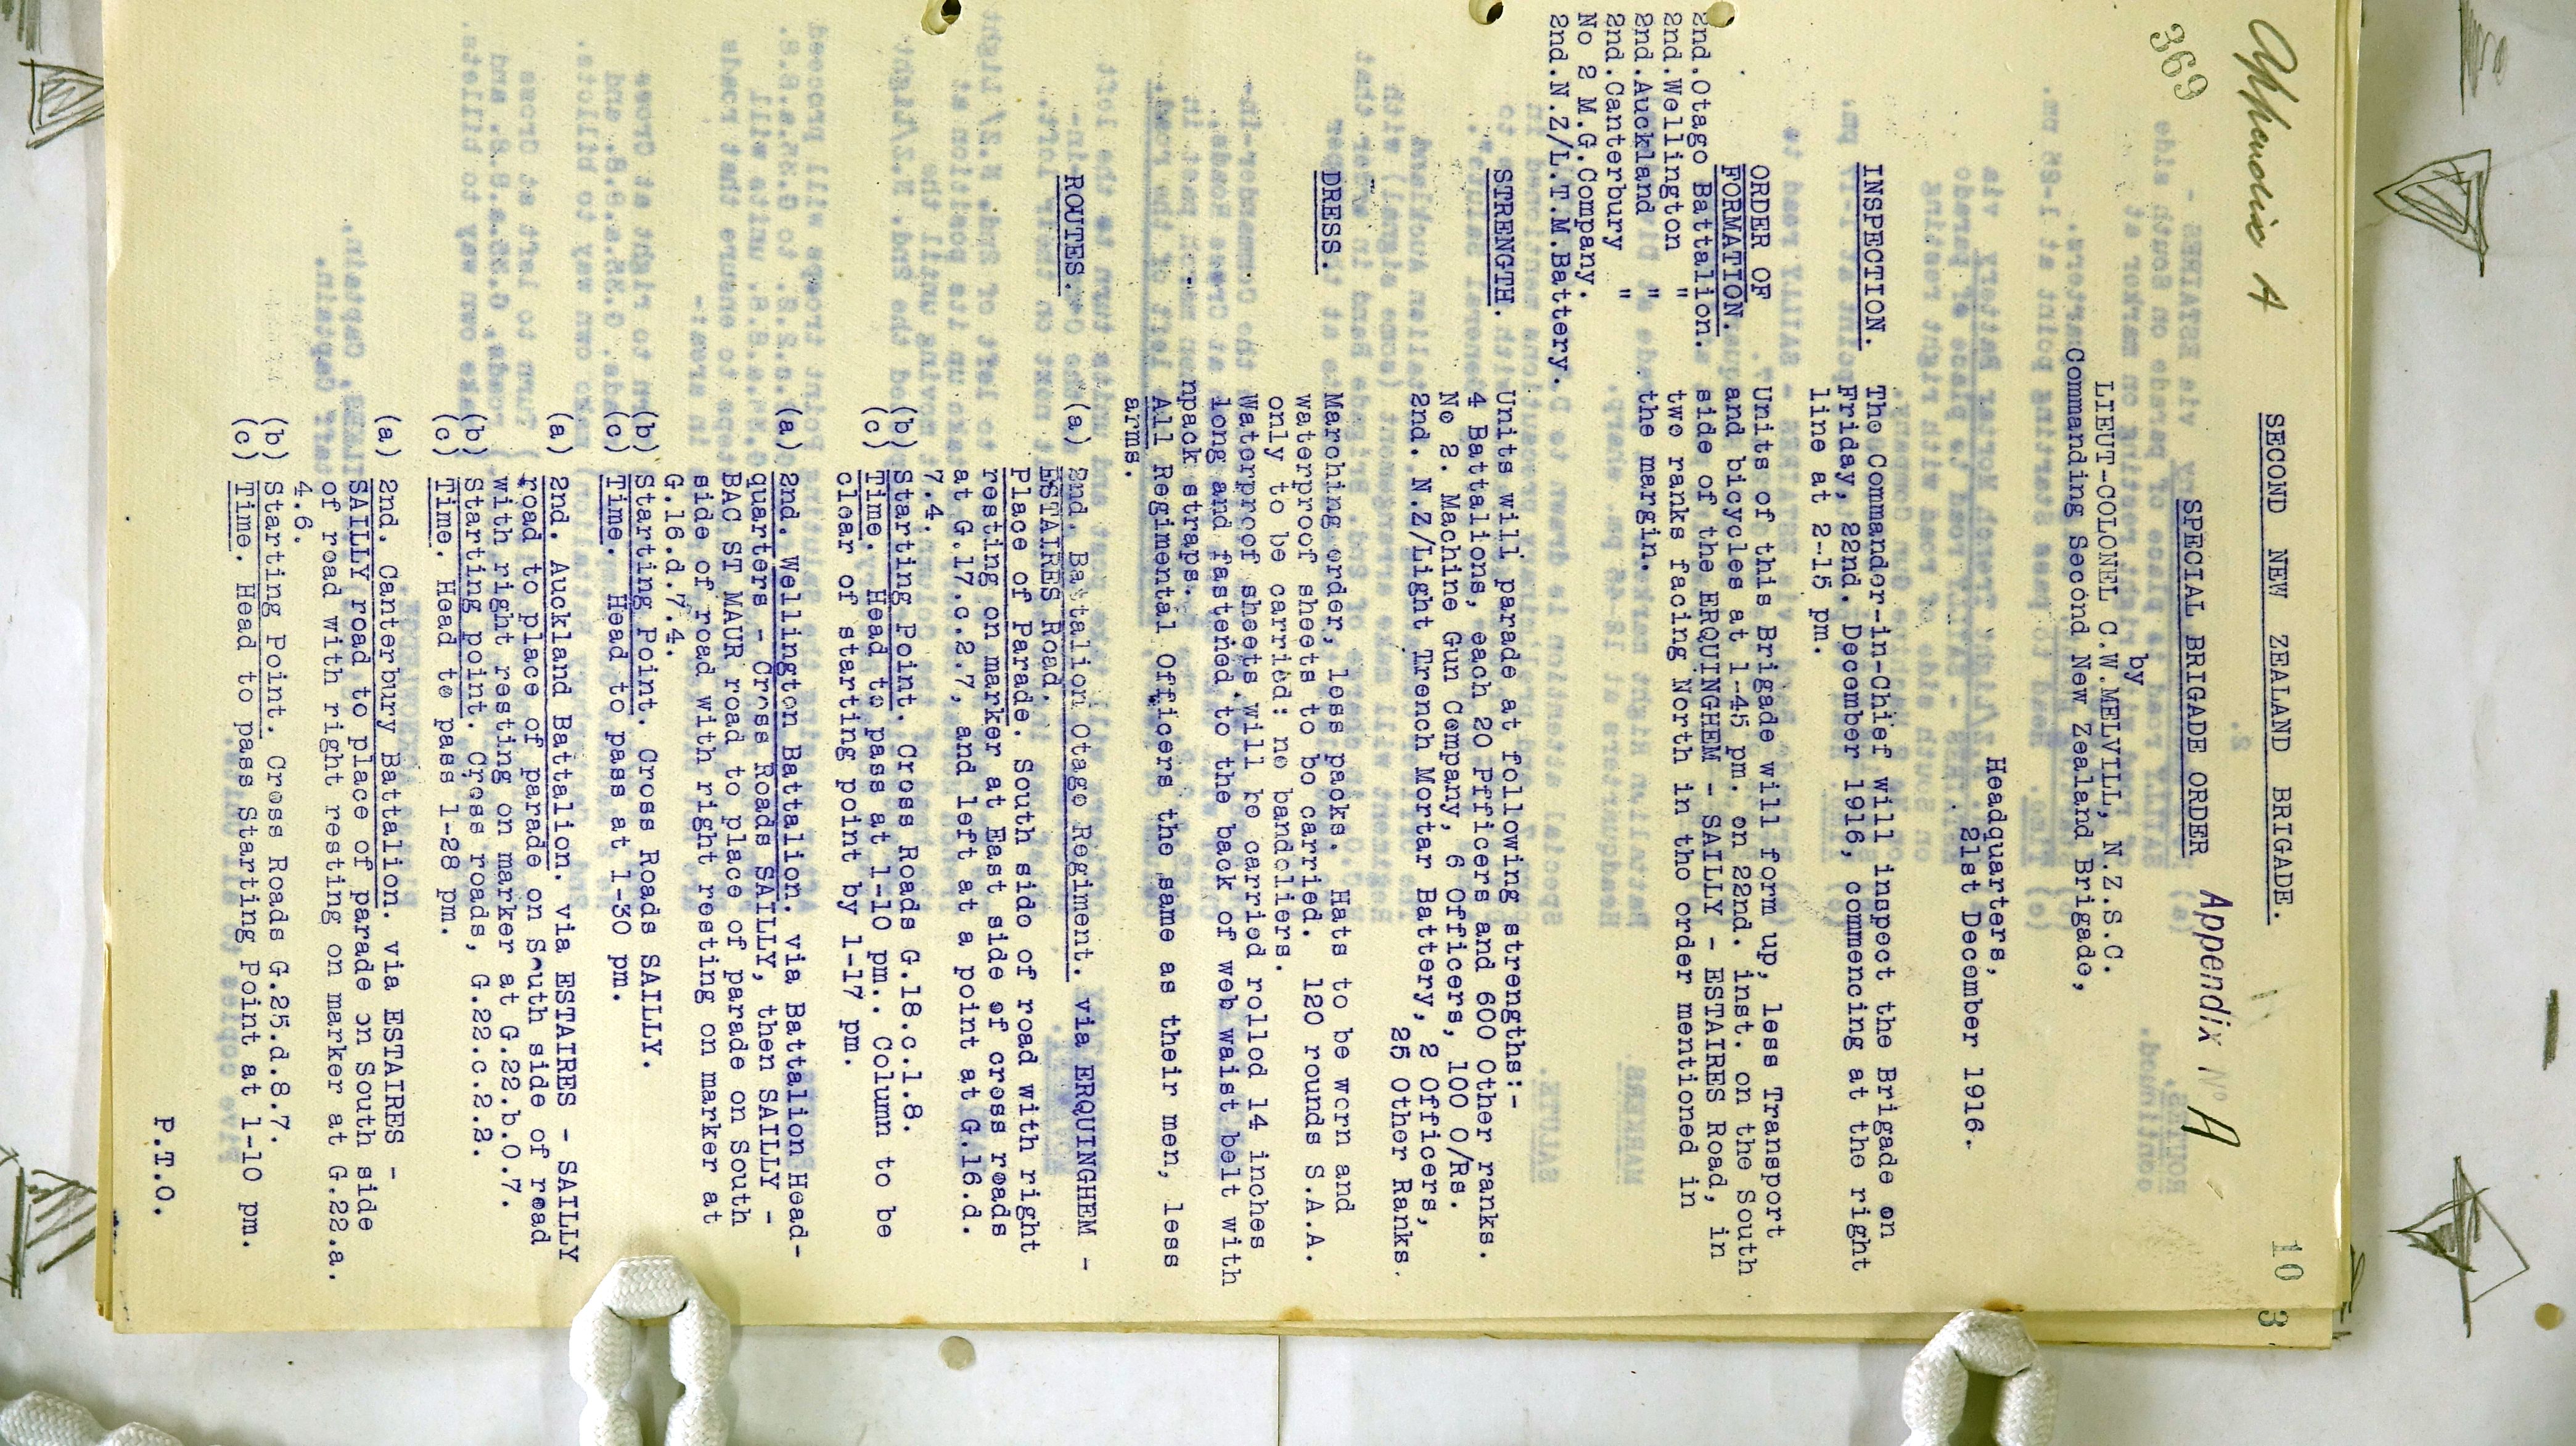 Appendix A
369
10 3
SECOND NEW ZEALAND BRIGADE.
SPECIAL BRIGADE ORDER Appendix No A
by
LIEUT-COLONEL C.W.MELVILL, N.Z.S.C.
Commanding Second New Zealand Brigade,
Headquarters,
21st December 1916.
INSPECTION. The Commander-in-Chief will inspect the Brigade on
Friday, 22nd. December 1916, commencing at the right
line at 2-15 pm.
ORDER OF
FORMATION. Units of this Brigade will form up, less Transport
and bicycles at 1-45 pm. on 22nd. inst. on the South
2nd.Otago Battalion. side of the ERQUINGHEM - SAILLY - ESTAIRES Road, in
2nd.Wellington " two ranks facing North in the order mentioned in
2nd.Auckland " the margin.
2nd.Canterbury "
No 2 M.G.Company.
2nd.N.Z/L.T.M.Battery.
STRENGTH. Units will parade at following strengths:-
4 Battalions, each 20 Officers and 600 Other ranks.
No 2. Machine Gun Company, 6 Officers, 100 O/Rs.
2nd. N.Z/Light Trench Mortar Battery, 2 Officers,
25 Other Ranks.
DRESS. Marching order, less packs. Hats to be worn and
waterproof sheets to be carried. 120 rounds S.A.A.
only to be carried: no bandoliers.
Waterproof sheets will be carried rolled 14 inches
long and fastened to the back of web waist belt with
npack straps.
All Regimental Officers the same as their men, less
arms.
ROUTES. (a) 2nd. Battalion Otago Regiment. via ERQUINGHEM -
ESTAIRES Road.
Place of Parade. South side of road with right
resting on marker at East side of cross roads
at G.17.c.2.7, and left at a point at G.16.d.
7.4.
(b) Starting Point. Cross Roads G.18.c.1.8.
(c) Time. Head to pass at 1-10 pm.. Column to be
clear of starting point by 1-17 pm.
(a) 2nd. Wellington Battalion. via Battalion Head-
quarters - Cross Roads SAILLY, then SAILLY -
BAC ST MAUR road to place of parade on South
side of road with right resting on marker at
G.16.d.7.4.
(b) Starting Point. Cross Roads SAILLY.
(c) Time. Head to pass at 1-30 pm.
(a) 2nd. Auckland Battalion. via ESTAIRES - SAILLY
road to place of parade on South side of road
with right resting on marker at G.22.b.0.7.
(b) Starting point. Cross roads, G.22.c.2.2.
(c) Time. Head to pass 1-28 pm.
(a) 2nd. Canterbury Battalion. via ESTAIRES -
SAILLY road to place of parade on South side
of road with right resting on marker at G.22.a.
4.6.
(b) Starting Point. Cross Roads G.25.d.8.7.
(c) Time. Head to pass Starting Point at 1-10 pm.
P.T.O.